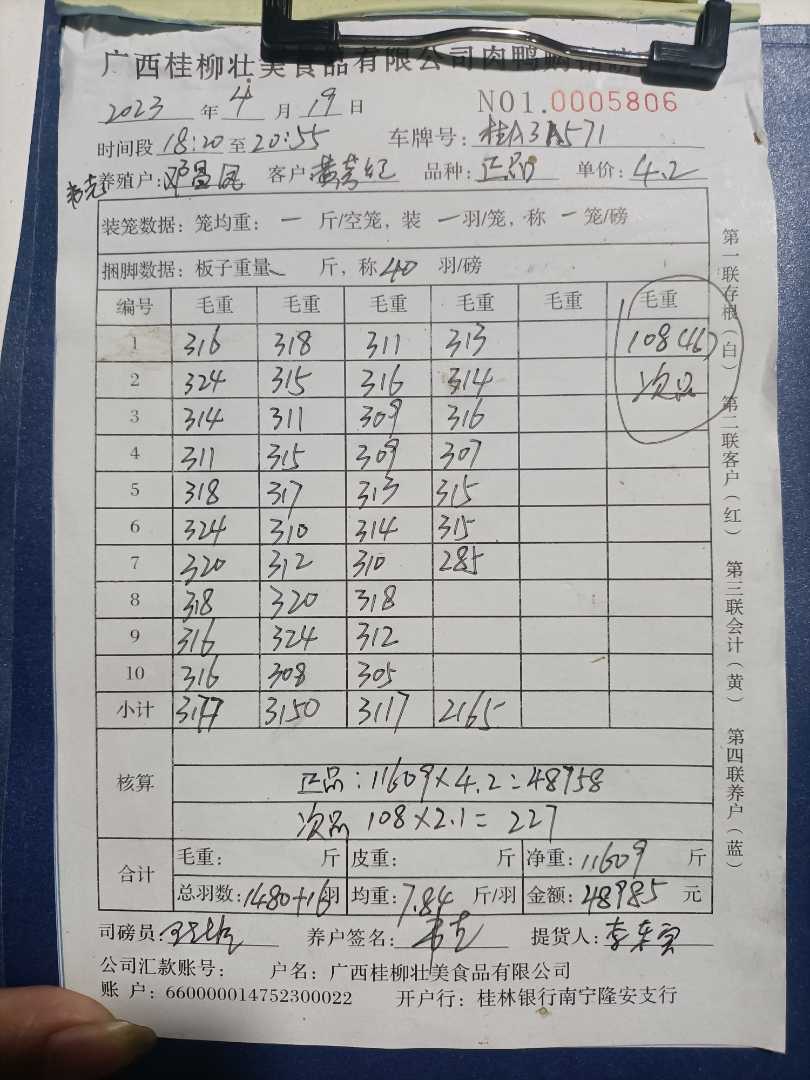 广西桂柳壮美食品有限公司肉鸭
2023 年 4 月 19 日 NO1.0005806
时间段 18:20 至 20:55 车牌号: 桂A3A571
韦克 养殖户: 邓昌 客户: 黄 品种: 正品 单价: 4.2
装笼数据: 笼均重: 一 斤/空笼, 装 一 羽/笼, 称 一 笼/磅
捆脚数据: 板子重量 斤, 称 40 羽/磅
编号 毛重 毛重 毛重 毛重 毛重 毛重
1 316 318 311 313 108(16)
2 324 315 316 314 次品
3 314 311 309 316
4 311 315 309 307
5 318 317 313 315
6 324 310 314 315
7 320 312 310 285
8 318 320 318
9 316 324 312
10 316 308 305
小计 3177 3150 3117 2165
核算
正品: 11609×4.2=48758
次品 108×2.1= 227
合计
毛重: 斤 皮重: 斤 净重: 11609 斤
总羽数: 1480+16 羽 均重: 7.84 斤/羽 金额: 48985 元
司磅员: 养户签名: 韦克 提货人: 李
公司汇款账号: 户名: 广西桂柳壮美食品有限公司
账 户: 660000014752300022 开户行: 桂林银行南宁隆安支行
第一联存根(白) 第二联客户(红) 第三联会计(黄) 第四联养户(蓝)